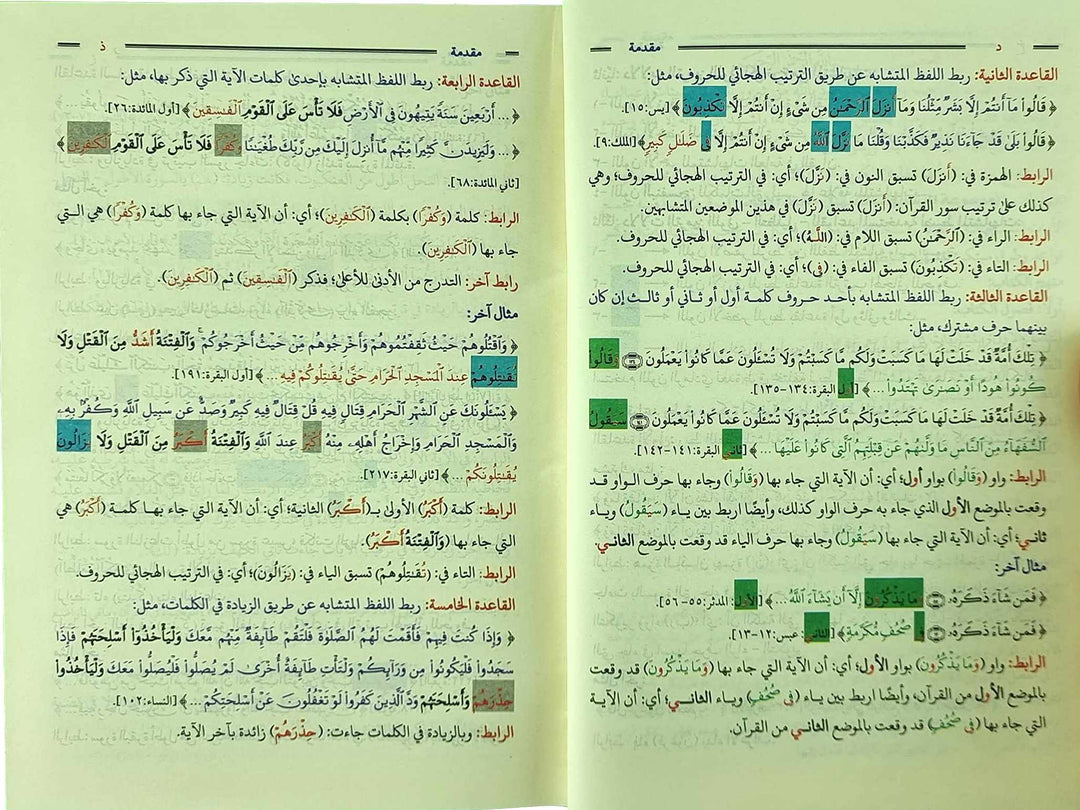 د مقدمة
القاعدة الثانية: ربط اللفظ المتشابه عن طريق الترتيب الهجائي للحروف، مثل:
﴿ قَالُوا مَا أَنتُمْ إِلَّا بَشَرٌ مِّثْلُنَا وَمَا أَنزَلَ ٱلرَّحْمَـٰنُ مِن شَىْءٍ إِنْ أَنتُمْ إِلَّا تَكْذِبُونَ ﴾ [يس:١٥].
﴿ قَالُوا بَلَىٰ قَدْ جَاءَنَا نَذِيرٌ فَكَذَّبْنَا وَقُلْنَا مَا نَزَّلَ ٱللَّهُ مِن شَىْءٍ إِنْ أَنتُمْ إِلَّا فِى ضَلَـٰلٍ كَبِيرٍ ﴾ [الملك:٩].
الرابط: الهمزة في: (أَنزَلَ) تسبق النون في: (نَزَّلَ)؛ أي: في الترتيب الهجائي للحروف؛ وهي
كذلك على ترتيب سور القرآن: (أَنزَلَ) تسبق (نَزَّلَ) في هذين الموضعين المتشابهين.
الرابط: الراء في: (ٱلرَّحْمَـٰنُ) تسبق اللام في: (اللَّهُ)؛ أي: في الترتيب الهجائي للحروف.
الرابط: التاء في: (تَكْذِبُونَ) تسبق الفاء في: (فِى)؛ أي: في الترتيب الهجائي للحروف.
القاعدة الثالثة: ربط اللفظ المتشابه بأحد حروف كلمة أول أو ثاني أو ثالث إن كان
بينهما حرف مشترك، مثل:
﴿ تِلْكَ أُمَّةٌ قَدْ خَلَتْ لَهَا مَا كَسَبَتْ وَلَكُم مَّا كَسَبْتُمْ وَلَا تُسْـَٔلُونَ عَمَّا كَانُوا يَعْمَلُونَ ١٣٤ وَقَالُوا
كُونُوا هُودًا أَوْ نَصَـٰرَىٰ تَهْتَدُوا ... ﴾ [أول البقرة:١٣٤-١٣٥].
﴿ تِلْكَ أُمَّةٌ قَدْ خَلَتْ لَهَا مَا كَسَبَتْ وَلَكُم مَّا كَسَبْتُمْ وَلَا تُسْـَٔلُونَ عَمَّا كَانُوا يَعْمَلُونَ ١٤١ سَيَقُولُ
ٱلسُّفَهَاءُ مِنَ ٱلنَّاسِ مَا وَلَّىٰهُمْ عَن قِبْلَتِهِمُ ٱلَّتِى كَانُوا عَلَيْهَا ... ﴾ [ثاني البقرة:١٤١-١٤٢].
الرابط: واو (وَقَالُوا) بواو أول؛ أي: أن الآية التي جاء بها (وَقَالُوا) وجاء بها حرف الواو قد
وقعت بالموضع الأول الذي جاء به حرف الواو كذلك، وأيضًا اربط بين ياء (سَيَقُولُ) وياء
ثاني؛ أي: أن الآية التي جاء بها (سَيَقُولُ) وجاء بها حرف الياء قد وقعت بالموضع الثاني.
مثال آخر:
﴿ فَمَن شَاءَ ذَكَرَهُۥ ٥٥ وَمَا يَذْكُرُونَ إِلَّا أَن يَشَاءَ ٱللَّهُ ... ﴾ [الأول: المدثر:٥٥-٥٦].
﴿ فَمَن شَاءَ ذَكَرَهُۥ ١٢ فِى صُحُفٍ مُّكَرَّمَةٍ ﴾ [الثاني: عبس:١٢-١٣].
الرابط: واو (وَمَا يَذْكُرُونَ) بواو الأول؛ أي: أن الآية التي جاء بها (وَمَا يَذْكُرُونَ) قد وقعت
بالموضع الأول من القرآن، وأيضًا اربط بين ياء (فِى صُحُفٍ) وياء الثاني؛ أي: أن الآية
التي جاء بها (فِى صُحُفٍ) قد وقعت بالموضع الثاني من القرآن.
مقدمة ذ
القاعدة الرابعة: ربط اللفظ المتشابه بإحدى كلمات الآية التي ذكر بها، مثل:
﴿ ... أَرْبَعِينَ سَنَةً يَتِيهُونَ فِى ٱلْأَرْضِ فَلَا تَأْسَ عَلَى ٱلْقَوْمِ ٱلْفَـٰسِقِينَ ﴾ [أول المائدة:٢٦].
﴿ ... وَلَيَزِيدَنَّ كَثِيرًا مِّنْهُم مَّا أُنزِلَ إِلَيْكَ مِن رَّبِّكَ طُغْيَـٰنًا وَكُفْرًا فَلَا تَأْسَ عَلَى ٱلْقَوْمِ ٱلْكَـٰفِرِينَ ﴾
[ثاني المائدة:٦٨].
الرابط: كلمة (وَكُفْرًا) بكلمة (ٱلْكَـٰفِرِينَ)؛ أي: أن الآية التي جاء بها كلمة (وَكُفْرًا) هي التي
جاء بها (ٱلْكَـٰفِرِينَ).
رابط آخر: التدرج من الأدنى للأعلى؛ فذكر (ٱلْفَـٰسِقِينَ) ثم (ٱلْكَـٰفِرِينَ).
مثال آخر:
﴿ وَٱقْتُلُوهُمْ حَيْثُ ثَقِفْتُمُوهُمْ وَأَخْرِجُوهُم مِّنْ حَيْثُ أَخْرَجُوكُمْ وَٱلْفِتْنَةُ أَشَدُّ مِنَ ٱلْقَتْلِ وَلَا
تُقَـٰتِلُوهُمْ عِندَ ٱلْمَسْجِدِ ٱلْحَرَامِ حَتَّىٰ يُقَـٰتِلُوكُمْ فِيهِ ... ﴾ [أول البقرة:١٩١].
﴿ يَسْـَٔلُونَكَ عَنِ ٱلشَّهْرِ ٱلْحَرَامِ قِتَالٍ فِيهِ قُلْ قِتَالٌ فِيهِ كَبِيرٌ وَصَدٌّ عَن سَبِيلِ ٱللَّهِ وَكُفْرٌ بِهِۦ
وَٱلْمَسْجِدِ ٱلْحَرَامِ وَإِخْرَاجُ أَهْلِهِۦ مِنْهُ أَكْبَرُ عِندَ ٱللَّهِ وَٱلْفِتْنَةُ أَكْبَرُ مِنَ ٱلْقَتْلِ وَلَا يَزَالُونَ
يُقَـٰتِلُونَكُمْ ... ﴾ [ثاني البقرة:٢١٧].
الرابط: كلمة (أَكْبَرُ) الأولى بـ(أَكْبَرُ) الثانية؛ أي: أن الآية التي جاء بها كلمة (أَكْبَرُ) هي
التي جاء بها (وَٱلْفِتْنَةُ أَكْبَرُ).
الرابط: التاء في: (تُقَـٰتِلُوهُمْ) تسبق الياء في: (يَزَالُونَ)؛ أي: في الترتيب الهجائي للحروف.
القاعدة الخامسة: ربط اللفظ المتشابه عن طريق الزيادة في الكلمات، مثل:
﴿ وَإِذَا كُنتَ فِيهِمْ فَأَقَمْتَ لَهُمُ ٱلصَّلَوٰةَ فَلْتَقُمْ طَائِفَةٌ مِّنْهُم مَّعَكَ وَلْيَأْخُذُوا أَسْلِحَتَهُمْ فَإِذَا
سَجَدُوا فَلْيَكُونُوا مِن وَرَائِكُمْ وَلْتَأْتِ طَائِفَةٌ أُخْرَىٰ لَمْ يُصَلُّوا فَلْيُصَلُّوا مَعَكَ وَلْيَأْخُذُوا
حِذْرَهُمْ وَأَسْلِحَتَهُمْ وَدَّ ٱلَّذِينَ كَفَرُوا لَوْ تَغْفُلُونَ عَنْ أَسْلِحَتِكُمْ ... ﴾ [النساء:١٠٢].
الرابط: وبالزيادة في الكلمات جاءت: (حِذْرَهُمْ) زائدة بآخر الآية.